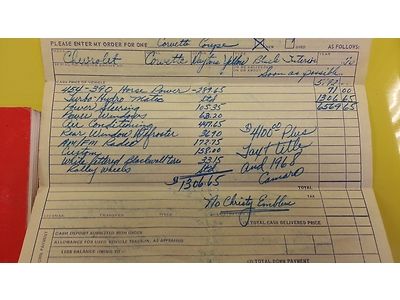 PLEASE ENTER MY ORDER FOR ONE Corvette Coupe NEW USED AS FOLLOWS:
Chevrolet Corvette Daytona Yellow Black Interior
Soon as possible
CASH PRICE OF VEHICLE
454-390 Horse Power 289.65 71.00
Turbo-Hydro Matic Std 1306.65
Power Steering 115.35 6569.65
Power Windows 63.20
Air Conditioning 447.65
Rear Window Defroster 36.90
AM/FM Radio 172.75
Custom 158.00
White lettered 33.15
Rally wheels Std
$1306.65
$4100.00 Plus
Tax & Title
and 1968
Camaro
TOTAL
No Christy Emblem
TOTAL CASH DELIVERED PRICE
DOWN PAYMENT
CASH DEPOSIT SUBMITTED WITH ORDER
ALLOWANCE FOR USED VEHICLE TRADE-IN, AS APPRAISED
LESS BALANCE OWING TO
TOTAL DOWN PAYMENT